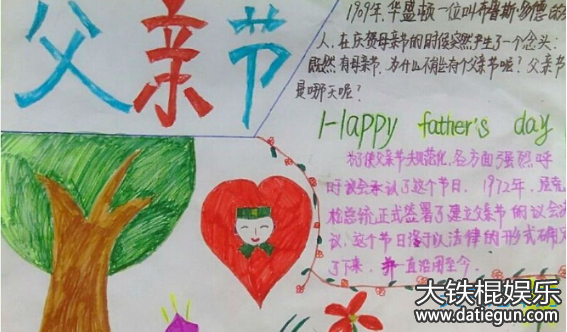 父亲节
1909年,华盛顿一位叫布鲁斯多德的
人,在庆贺母亲节的时候突然产生了一个念头:
既然有母亲节,为什么不能有个父亲节呢?父亲节
是哪天呢?
Happy father's day
为了使父亲节规范化,各方面强烈呼
时议会承认了这个节日。1972年,
松总统正式签署了建立父亲节的议会
议,这个节日终于以法律的形式确
了下来,并一直沿用至今。
大铁棍娱乐
www.datiegun.com